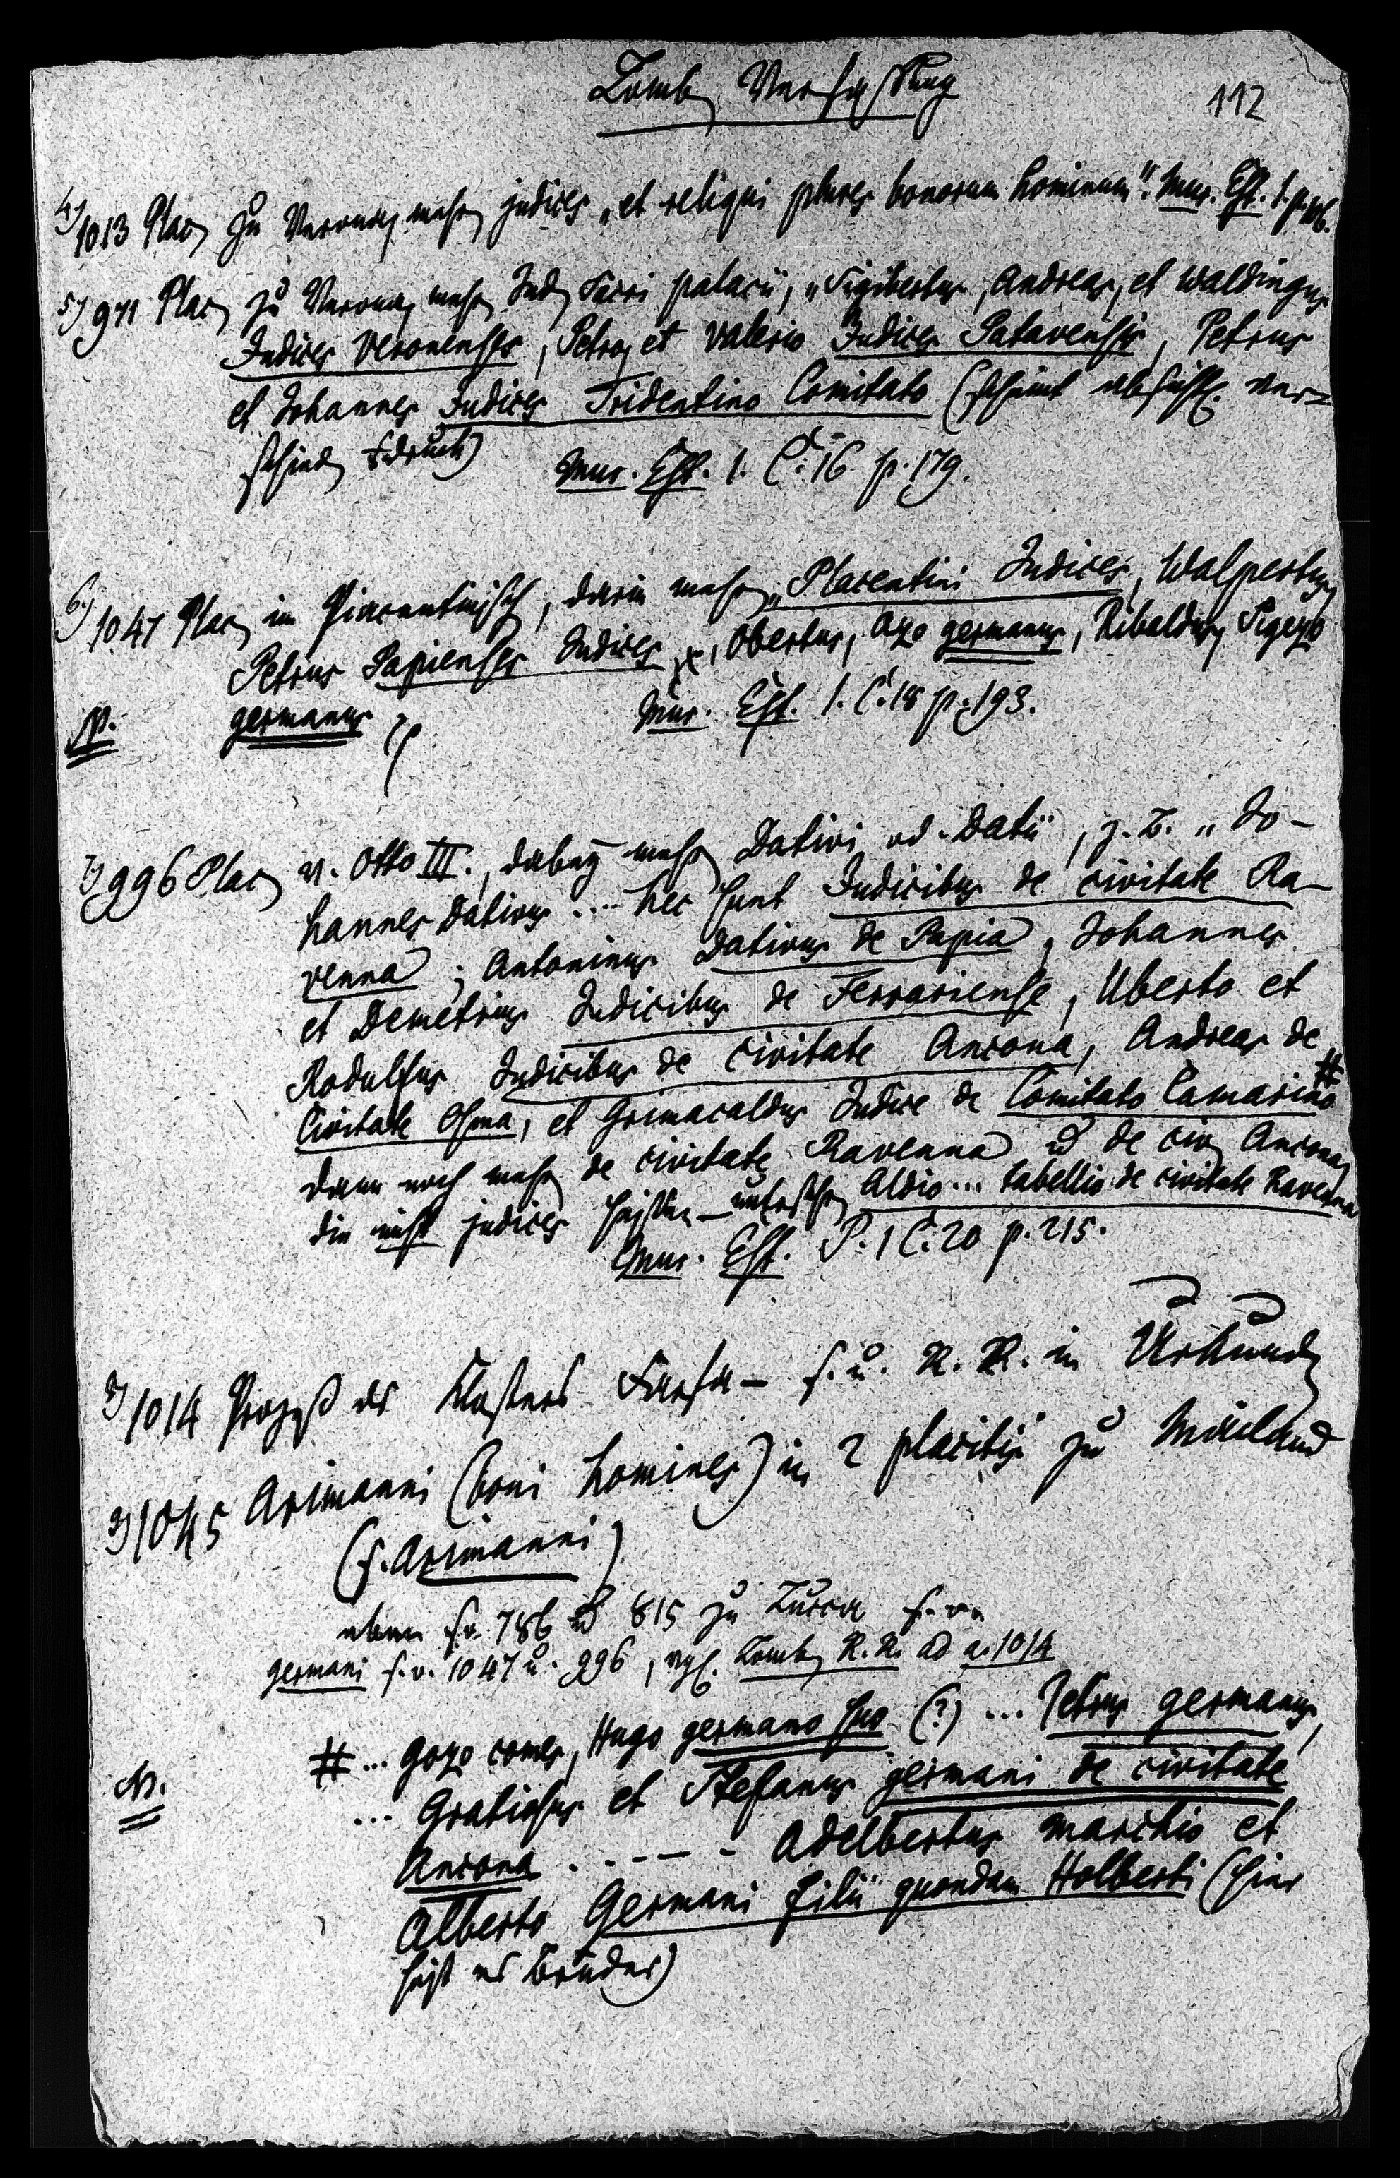 Lomb. Verfassung
112
4) 1013 Plac. zu Verona, mehr. judices „et reliqui plures bonorum hominum". Mur. Est. 1. p.
5) 971 Plac. zu Verona, mehr. Jud. sacri palacii, „Sigibertus, Andreas, et Waldingus
Judices Veronenses, Petro, et Valerio Judices Patavensis, Petrus
et Johannes Judices Tridentino Comitato (scheint absichtl. ver=
schied. )
Mur. Est. 1. C. 16 p. 179.
6) 1047 Plac. im Piacentinisch., darin mehr. „Placentini Judices, Walpertus,
Petrus Papienses Judices, Obertus, Azo germanus, Ribaldus, Sigezo
N. germanus
Mur. Est. 1. C. 18 p. 193.
7) 996 Plac. v. Otto III., dabey mehr. Dativi od. Datii, z. B. „Jo-
hannes Dativus .... hec sunt Judicibus de civitate Ra-
venna; Antoninus Dativus de Papia, Johannes
et Demetrius Judicibus de Ferrariense, Uberto et
Rodulfus Judicibus de civitate Ancona, Andreas de
Civitate Osma, et Grimacaldus Judice de Comitato Camarino #
dann noch mehr. de civitate Ravenna u de civ. Ancona,
die nicht judices heissen – unterschr. Aldio... tabellio de civitate Ravenna
Mur. Est. P. 1 C. 20 p. 215.
1014 Prozess des Klosters Farfa – s. u. R. R. in Urkund.
1045 Arimanni (boni homines) in 2 placitis zu Mailand
(s. Arimanni)
eben so 786 u 815 zu Lucca s. v.
germani s. v. 1047 u. 996, vgl. Lomb. R. R. ad a. 1014
# ... Gozo comes, Hugo germano suo (?) ... Petrus germanus,
N. ... Gratiosus et Stefanus germani de civitate
Ancona . . - - - - Adelbertus marchio et
Alberto Germani filii quondam Holberti (hier
heist es Brüder)